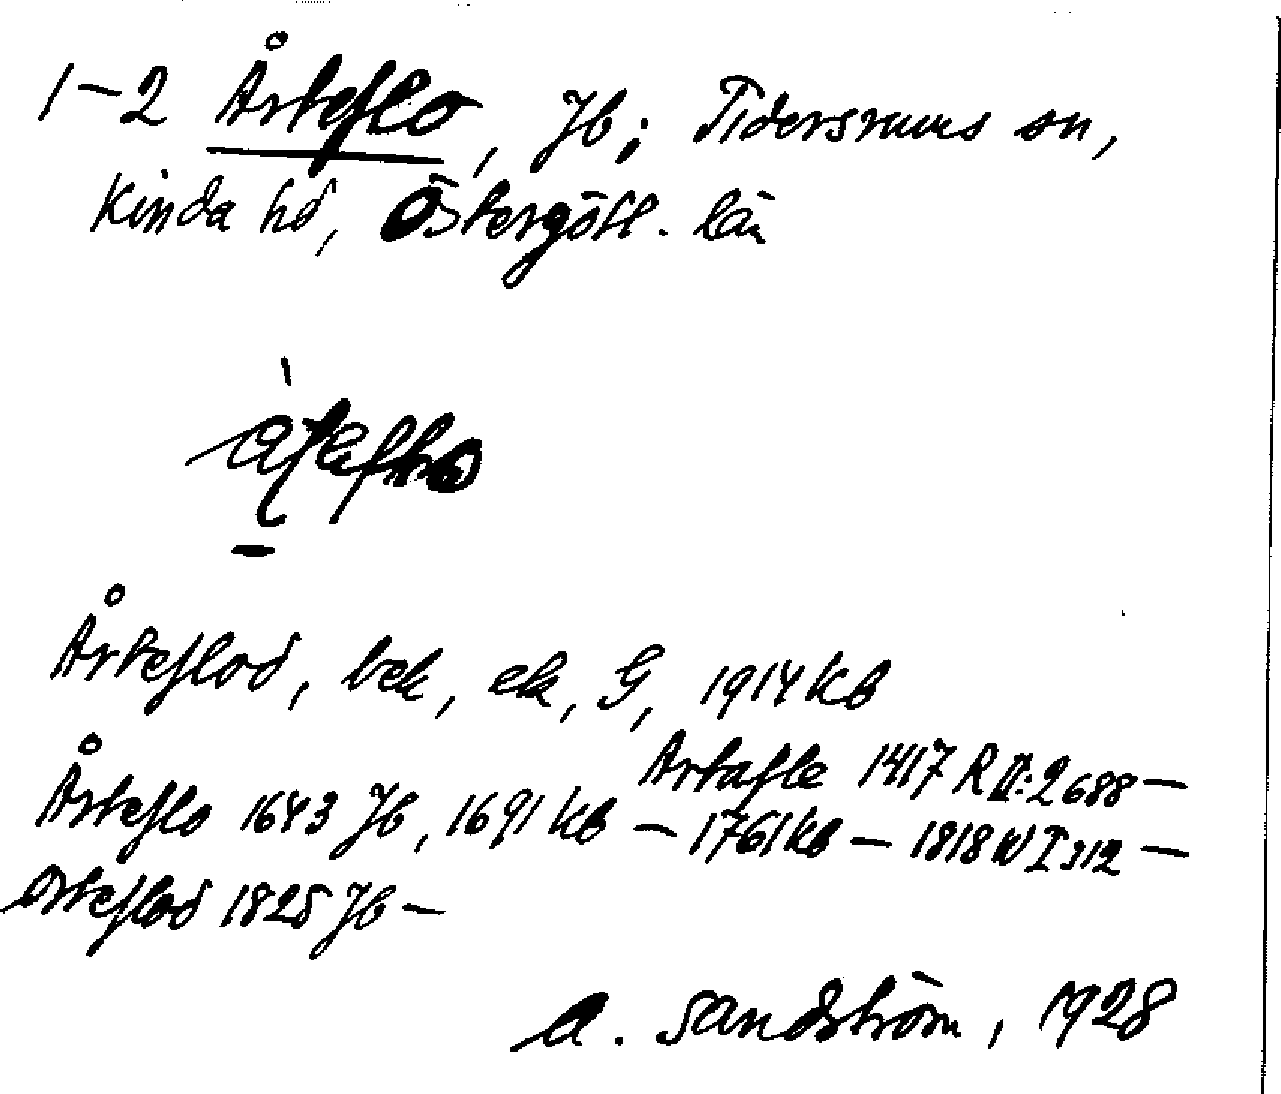 1-2 Årteflo, Jb; Tidersrums sn,
Kinda hd, Östergötl. län
Årteflod, bek, ek, G, 1914 kb
Artafle 1417 R II: 2688 —
Årteflo 1643 Jb, 1691 kb — 1761 kb — 1818 W I 312 —
Orteflod 1825 Jb —
A. Sandström, 1928